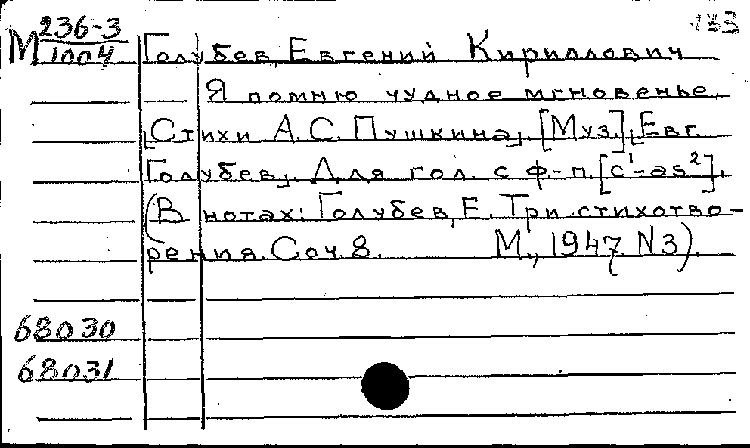 М 236-3
1004
Голубев, Евгений Кириллович
Я помню чудное мгновенье.
[Стихи А. С. Пушкина]. [Муз.] [Евг.
Голубев]. Для гол. с ф.-п. [c¹-as²].
(В нотах: Голубев, Е. Три стихотво-
рения. Соч. 8. М., 1947. N3).
68030
68031